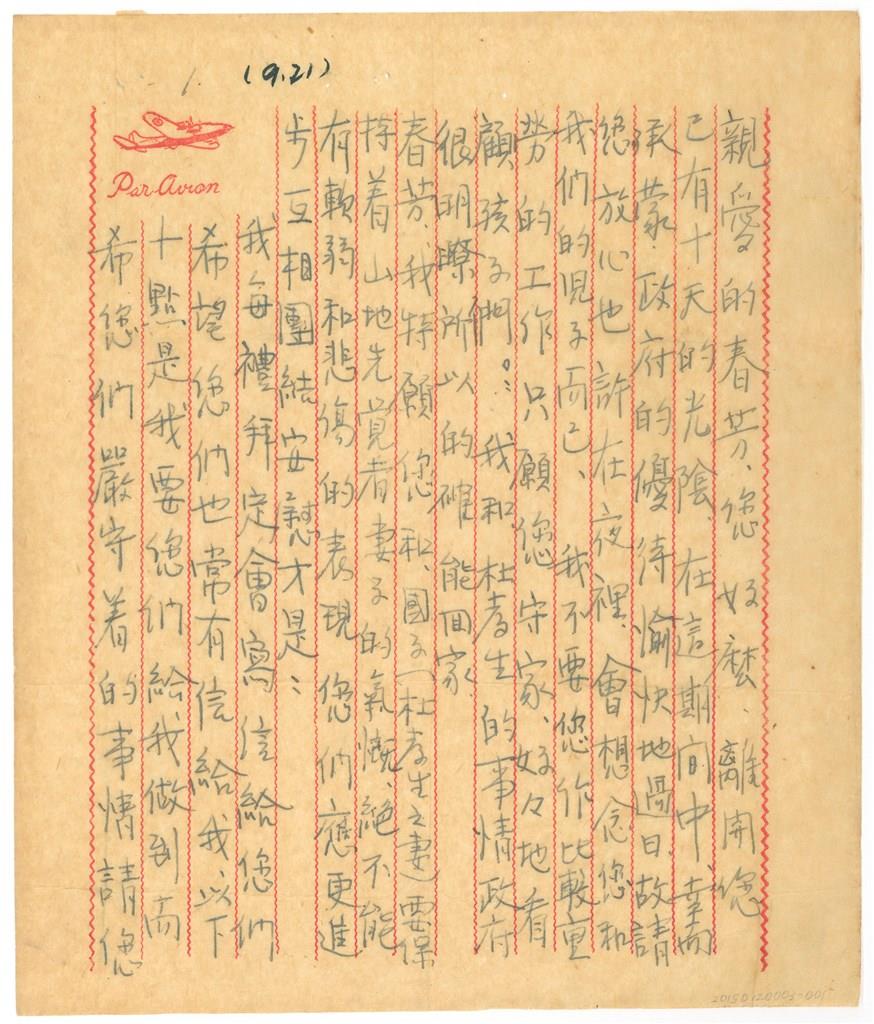 (9.21)
Par Avion
親愛的春芳、您好麼、離開您
已有十天的光陰、在這期间中、幸而
承蒙政府的優待愉快地過日故請
您放心也許在夜裡、會想念您和
我們的児子而已、我不要您作比較重
勞的工作只願您守家、好々地看
顧孩子們:我和杜孝生的事情政府
很明瞭所以的確能回家
春芳、我特願您和、國子(杜孝生之妻)要保
持着山地先覚者妻子的氣慨、絕不能
有軟弱和悲傷的表現您們應更進
步互相團結安慰才是:
我每禮拜定會寫信給您們
希望您們也常有信給我、以下
十點是我要您們給我做到而
希您們嚴守着的事情請您
20150120003-001